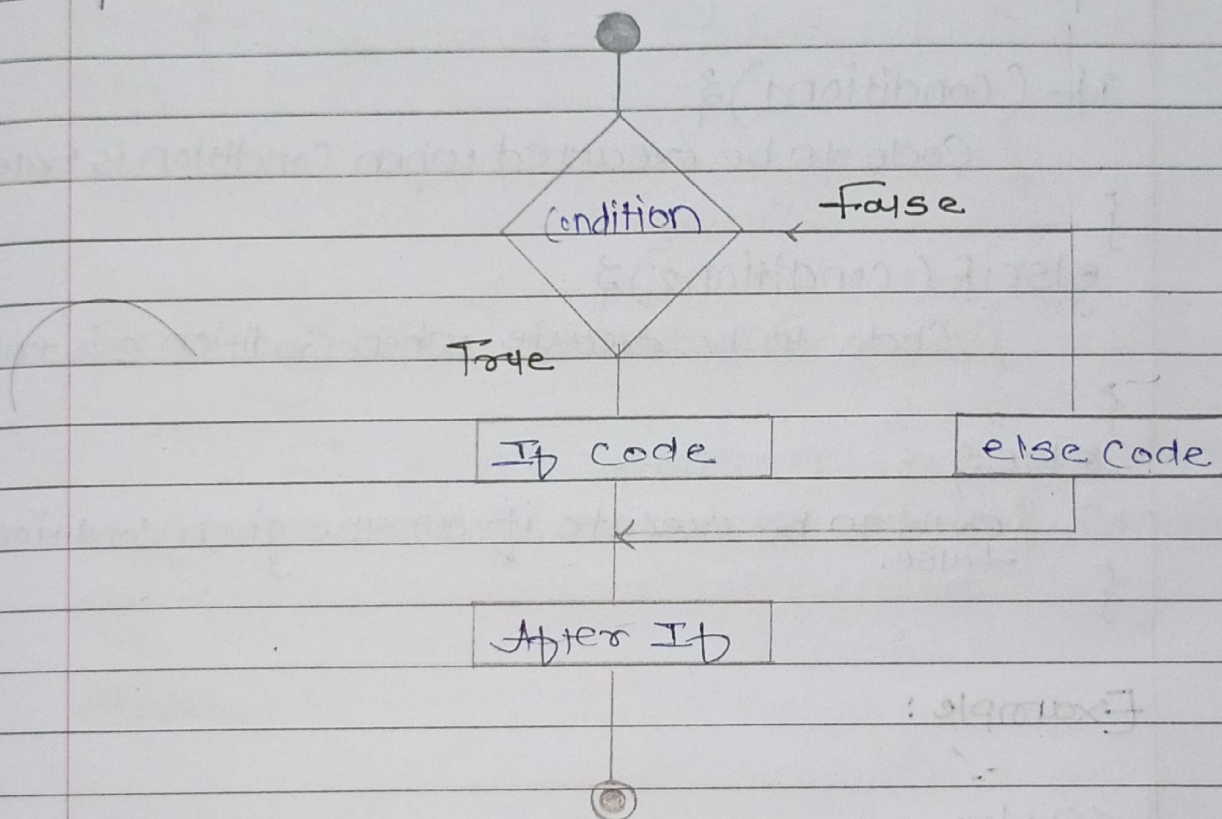 Condition
False
True
If code
else code
After If